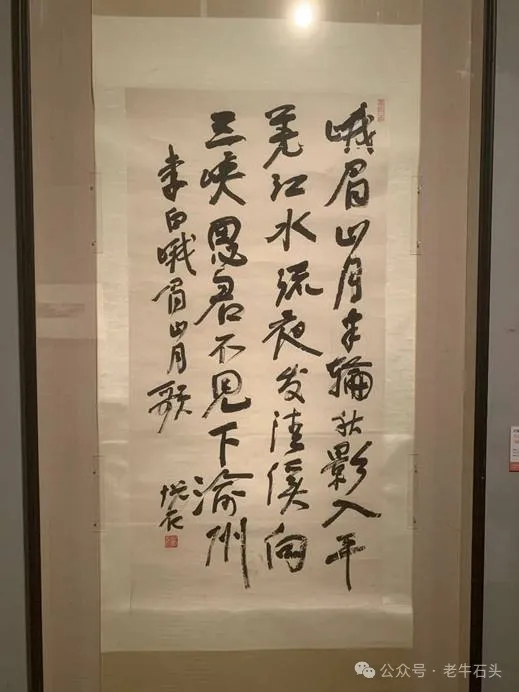 峨眉山月半輪秋影入平
羌江水流夜发清溪向
三峡思君不见下渝州
李白峨眉山月歌
公众号 · 老牛石头